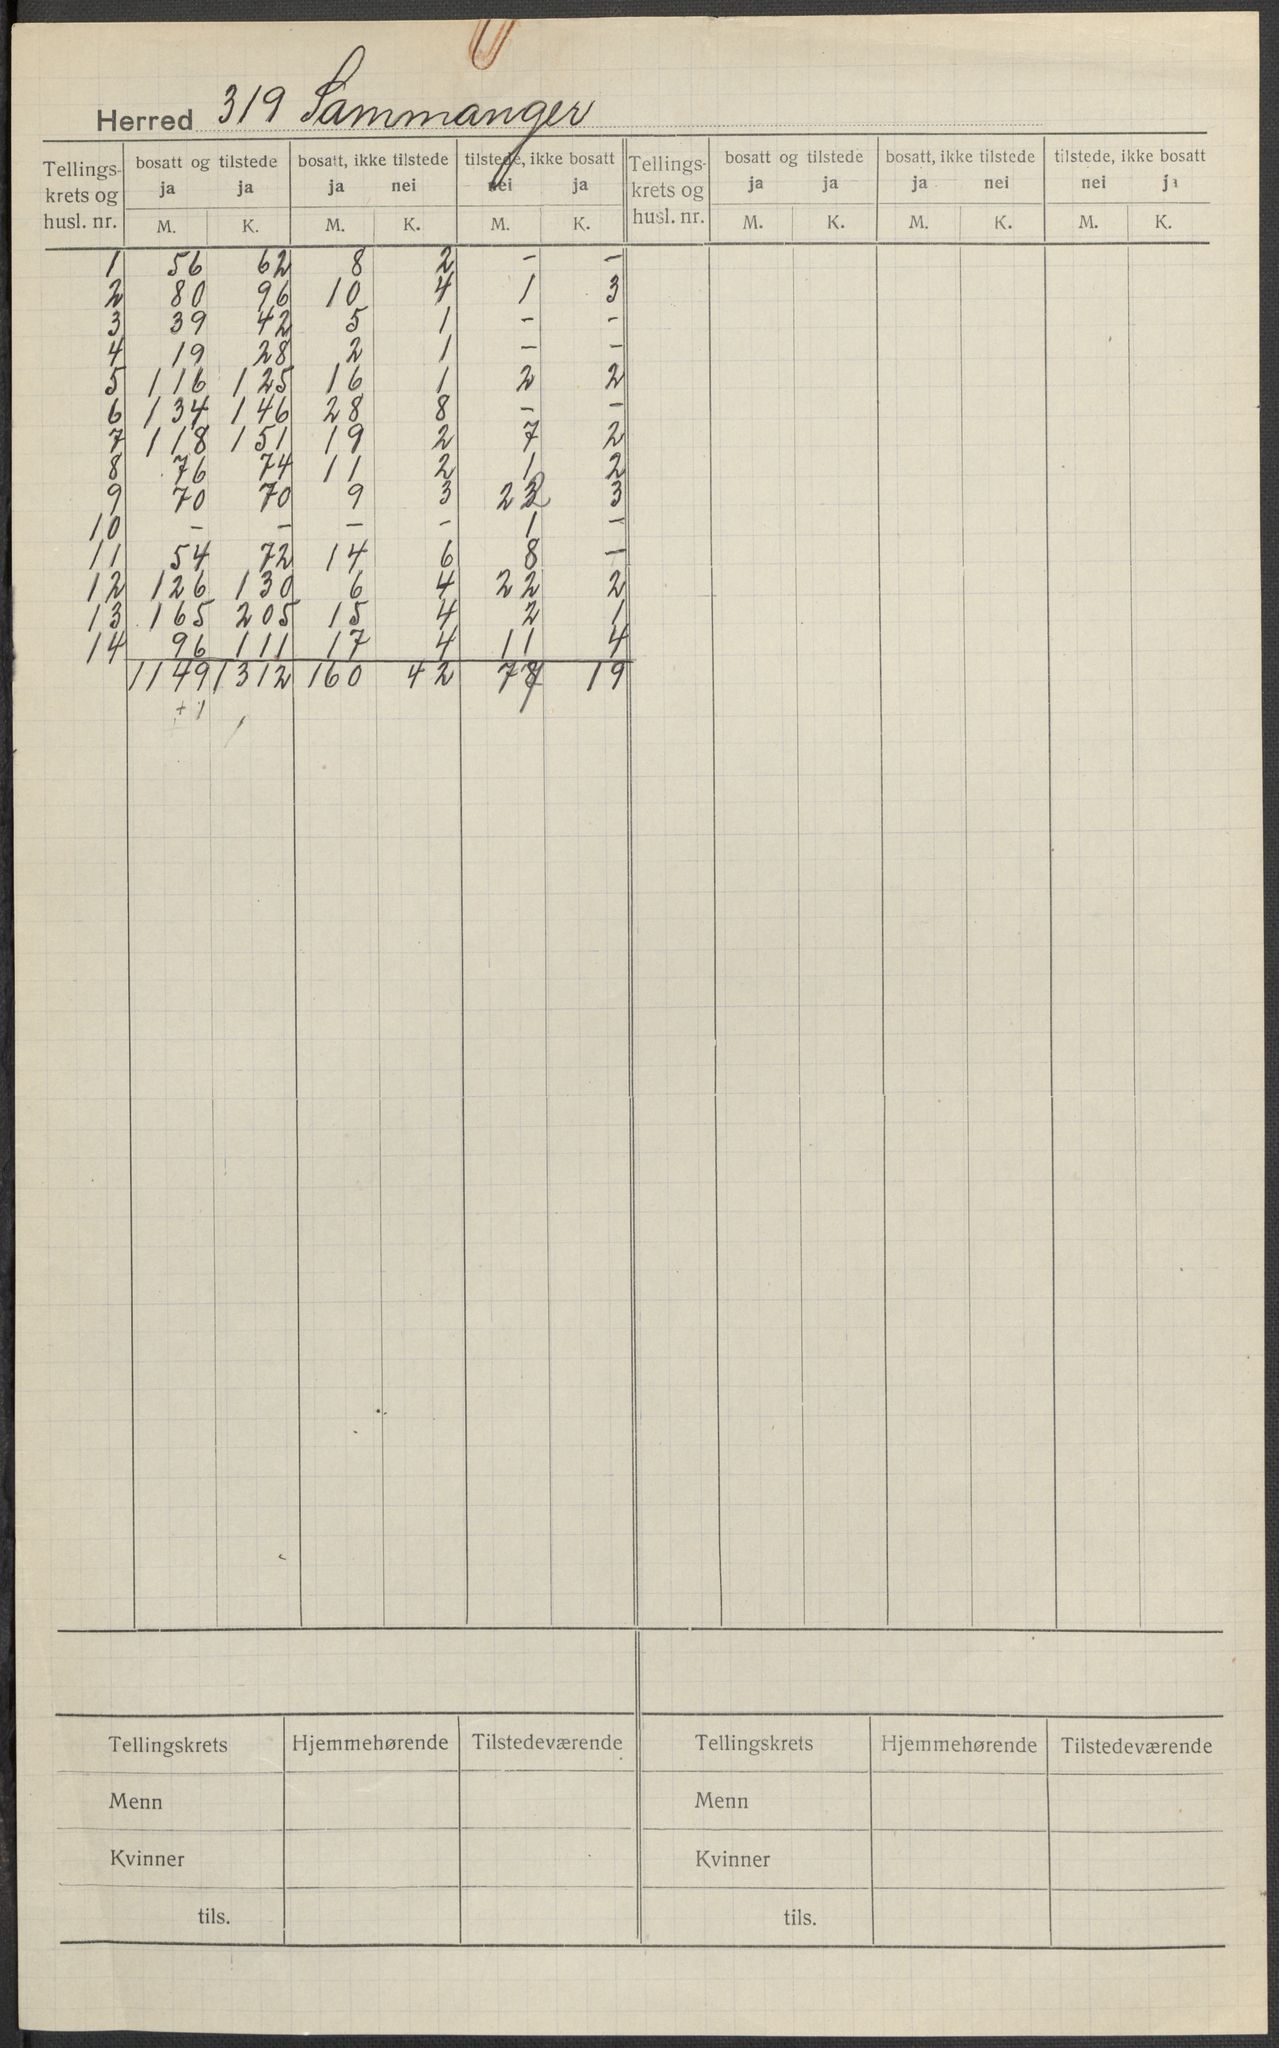 Herred 319 Sammanger
Tellings-krets og husl. nr. | bosatt og tilstede | bosatt, ikke tilstede | tilstede, ikke bosatt | Tellings-krets og husl. nr. | bosatt og tilstede | bosatt, ikke tilstede | tilstede, ikke bosatt
ja ja | ja nei | nei ja | ja ja | ja nei | nei ja
M. K. | M. K. | M. K. | M. K. | M. K. | M. K.
1 56 62 8 2 - -
2 80 96 10 4 1 3
3 39 42 5 1 - -
4 19 28 2 1 - -
5 116 125 16 1 2 2
6 134 146 28 8 - -
7 118 151 19 2 7 2
8 76 74 11 2 1 2
9 70 70 9 3 22 3
10 - - - - 1 -
11 54 72 14 6 8 -
12 126 130 6 4 22 2
13 165 205 15 4 2 1
14 96 111 17 4 11 4
1149 1312 160 42 77 19
+1
Tellingskrets | Hjemmehørende | Tilstedeværende | Tellingskrets | Hjemmehørende | Tilstedeværende
Menn | Menn
Kvinner | Kvinner
tils. | tils.